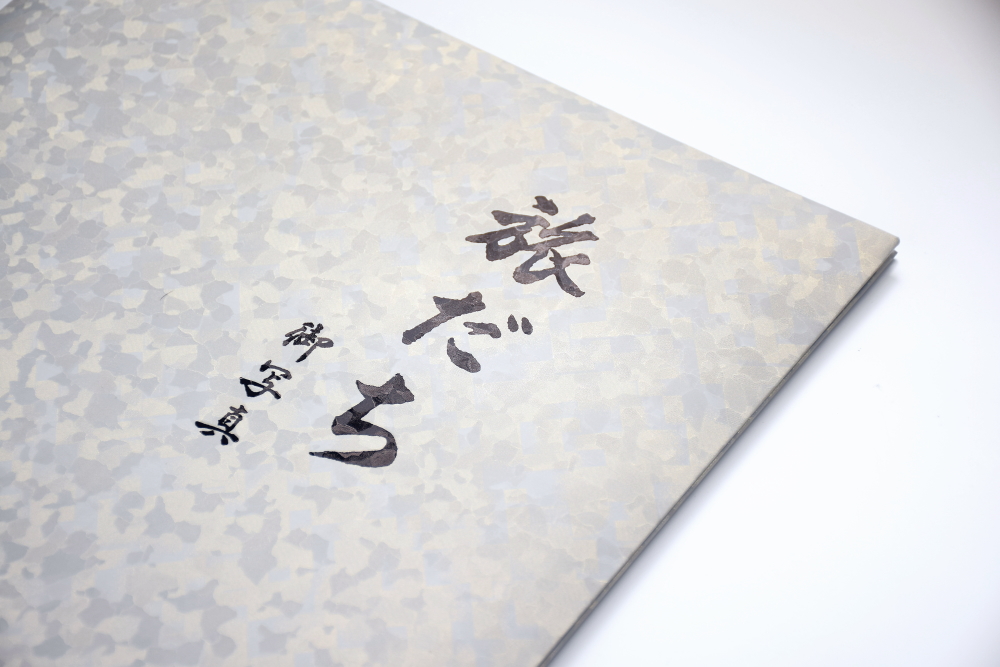 旅だち
御写真